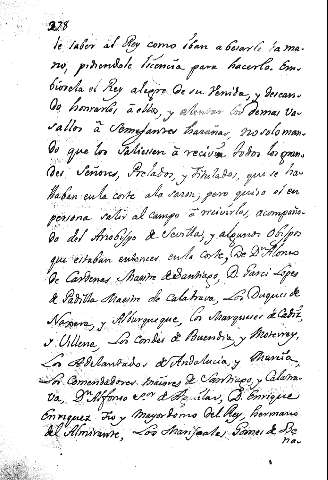 228
le saber al Rey como iban a besarle la ma-
no, pidiendole licencia para hacerlo. Em-
biosela el Rey alegre de su Venida, y descan-
do honrarlos â ellos, y alentar los demas va-
sallos â Semejantes hazañas, no solo man-
do que los Saliesen â recivir todos los gran-
des Señores, Prelados, y Titulados, que se ha-
llaban en la corte a la sazon; pero quiso el en
persona salir al campo â recivirlos, acompaña-
do del Arzobispo de Sevilla, y algunos Obispos
que estaban entonces en la corte, De Dn Alonso
de Cardenas Maestre de Santiago, D. Garci Lopes
de Padilla Maestre de Calatrava, Los Duques de
Naxera, y Alburquerque, los Marqueses de Cadiz,
y Villena, Los Condes de Buendia, y Monterrey,
Los Adelantados de Andalucia, y Murcia,
Los Comendadores maiores de Santiago, y Calatra-
va, Dn Alfonso Sor de Aguilar, D. Enrique
Enriquez Tio y Mayordomo del Rey, hermano
del Almirante, Los Mariscales Gomes de
na-